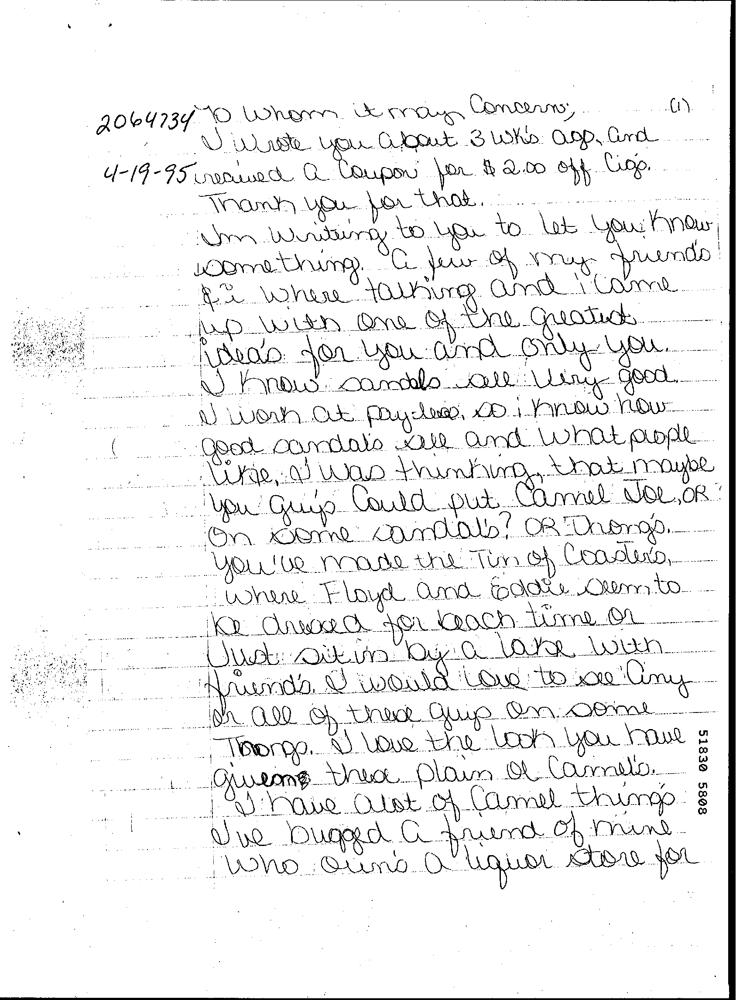 (1)
2064734 To Whom it may Concern;
I wrote you about 3 wk's ago, and
4-19-95 received A Coupon for $2.00 off Cig's.
Thank you for that.
I'm writing to you to let you know
something. A few of my friend's
& i where talking and i came
up with one of the greatest
idea's for you and only you.
I know sandals sell very good.
I work at pay-less, so i know how
good sandal's sell and what people
like, I was thinking, that maybe
you guy's could put Camel Joe, OR
on some sandal's? OR Thong's.
You've made the Tin of Coaster's,
where Floyd and Eddie seem to
be dressed for beach time or
Just sit in by a lake with
friend's. I would love to see any
or all of these guys on some
Thongs. I love the look you have
given these plain ol Camel's.
I have alot of Camel thing's
I've bugged a friend of mine
who own's a liquor store for
51830 5808